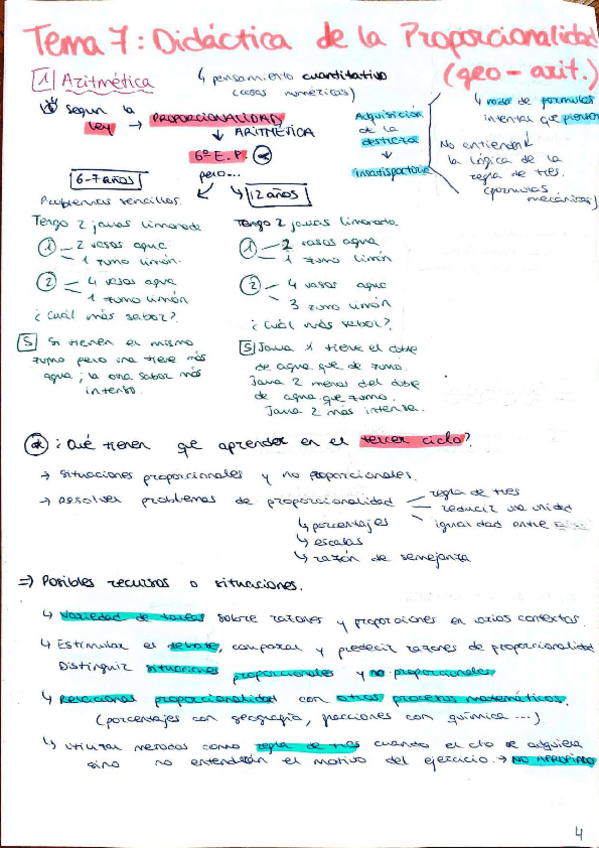 Tema 7: Didáctica de la Proporcionalidad
(geo - arit.)
1 Aritmética
↳ pensamiento cuantitativo
(cosas numéricas)
Según la
ley → PROPORCIONALIDAD
↓ ARITMÉTICA
6º E.P. *
pero...
Adquisición
de la
destreza
↓
insatisfactoria
↳ de formulas
que piensan
No entienden
la lógica de la
regla de tres.
(formulas
mecánicas)
6-7 años
Problemas sencillos.
Tengo 2 jarras limonada
1 - 2 vasos agua
- 1 zumo limón.
2 - 4 vasos agua
- 1 zumo limón
¿Cuál más sabor?
S Si tienen el mismo
zumo pero una tiene más
agua; la otra sabor más
intenso.
12 años
Tengo 2 jarras limonada.
1 - 2 vasos agua
- 1 zumo limón
2 - 4 vasos agua
- 3 zumo limón
¿Cuál más sabor?
S Jarra 1 tiene el doble
de agua que de zumo.
Jarra 2 menos del doble
de agua que zumo.
Jarra 2 más intensa.
* ¿Qué tienen que aprender en el tercer ciclo?
→ situaciones proporcionales y no proporcionales.
→ Resolver problemas de proporcionalidad
- regla de tres
- reducir una unidad
- igualdad entre
↳ porcentajes
↳ escalas
↳ razón de semejanza
⇒ Posibles recursos o situaciones.
↳ Variedad de tareas sobre razones y proporciones en varios contextos.
↳ Estimular el debate, comparar y predecir razones de proporcionalidad
Distinguir situaciones proporcionales y no proporcionales
↳ Relacionar proporcionalidad con otros procesos matemáticos.
(porcentajes con geografía, fracciones con química ...)
↳ Utilizar metodos como regla de tres cuando el cto se adquiera
sino no entenderán el motivo del ejercicio. → NO APROPIADO
4